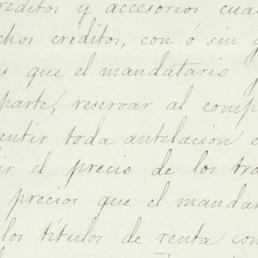 réditos y accesorios cua
chos créditos, con ó sin g
s que el mandatario p
parte, reservar al comp
entir toda antelacion e
ir el precio de los tra
precios que el mandat
los títulos de renta con